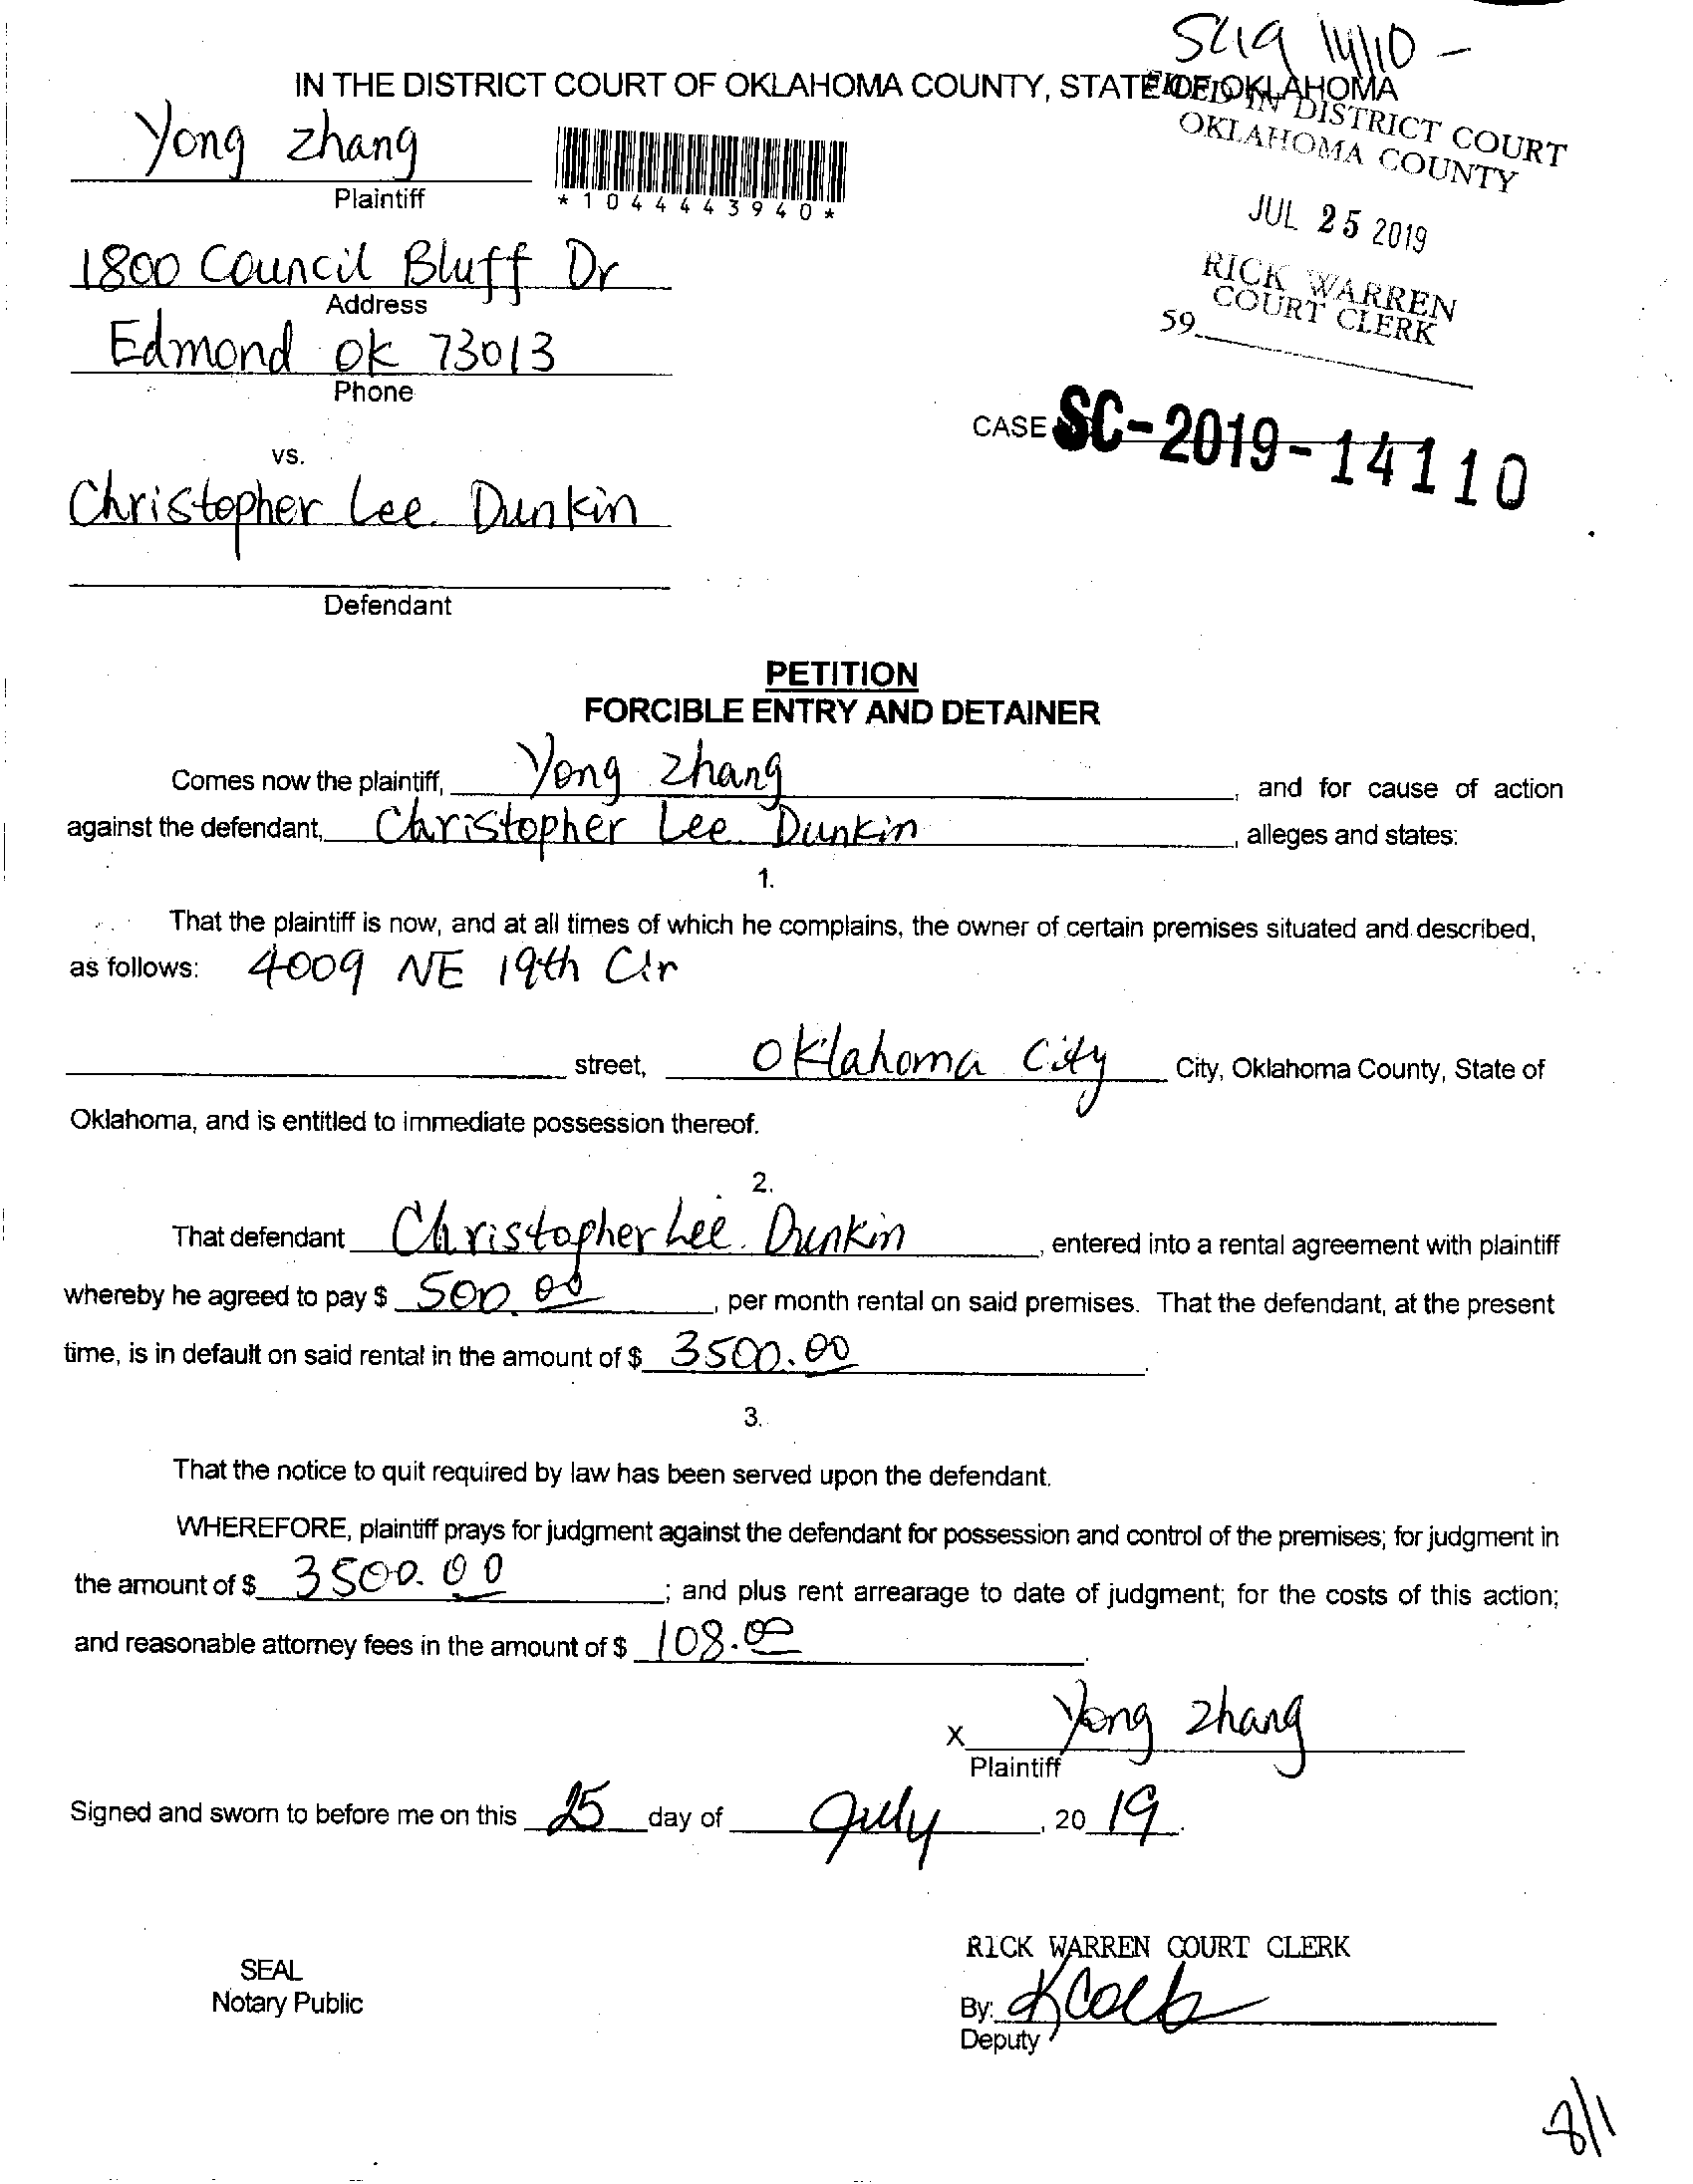 SC19 14110 -
IN THE DISTRICT COURT OF OKLAHOMA COUNTY, STATE OF OKLAHOMA
FILED IN DISTRICT COURT
OKLAHOMA COUNTY
Yong Zhang
Plaintiff
*1044443940*
JUL 25 2019
1800 Council Bluff Dr
Address
RICK WARREN
COURT CLERK
59
Edmond OK 73013
Phone
CASE SC-2019-14110
vs.
Christopher Lee Dunkin
Defendant
PETITION
FORCIBLE ENTRY AND DETAINER
Comes now the plaintiff, Yong Zhang, and for cause of action
against the defendant, Christopher Lee Dunkin, alleges and states:
1.
That the plaintiff is now, and at all times of which he complains, the owner of certain premises situated and described,
as follows: 4009 NE 19th Cir
street, Oklahoma City City, Oklahoma County, State of
Oklahoma, and is entitled to immediate possession thereof.
2.
That defendant Christopher Lee Dunkin, entered into a rental agreement with plaintiff
whereby he agreed to pay $ 500.00, per month rental on said premises. That the defendant, at the present
time, is in default on said rental in the amount of $ 3500.00.
3.
That the notice to quit required by law has been served upon the defendant.
WHEREFORE, plaintiff prays for judgment against the defendant for possession and control of the premises; for judgment in
the amount of $ 3500.00; and plus rent arrearage to date of judgment; for the costs of this action;
and reasonable attorney fees in the amount of $ 108.00.
X Yong Zhang
Plaintiff
Signed and sworn to before me on this 25 day of July, 20 19.
RICK WARREN COURT CLERK
SEAL
Notary Public
By:
Deputy
8/1